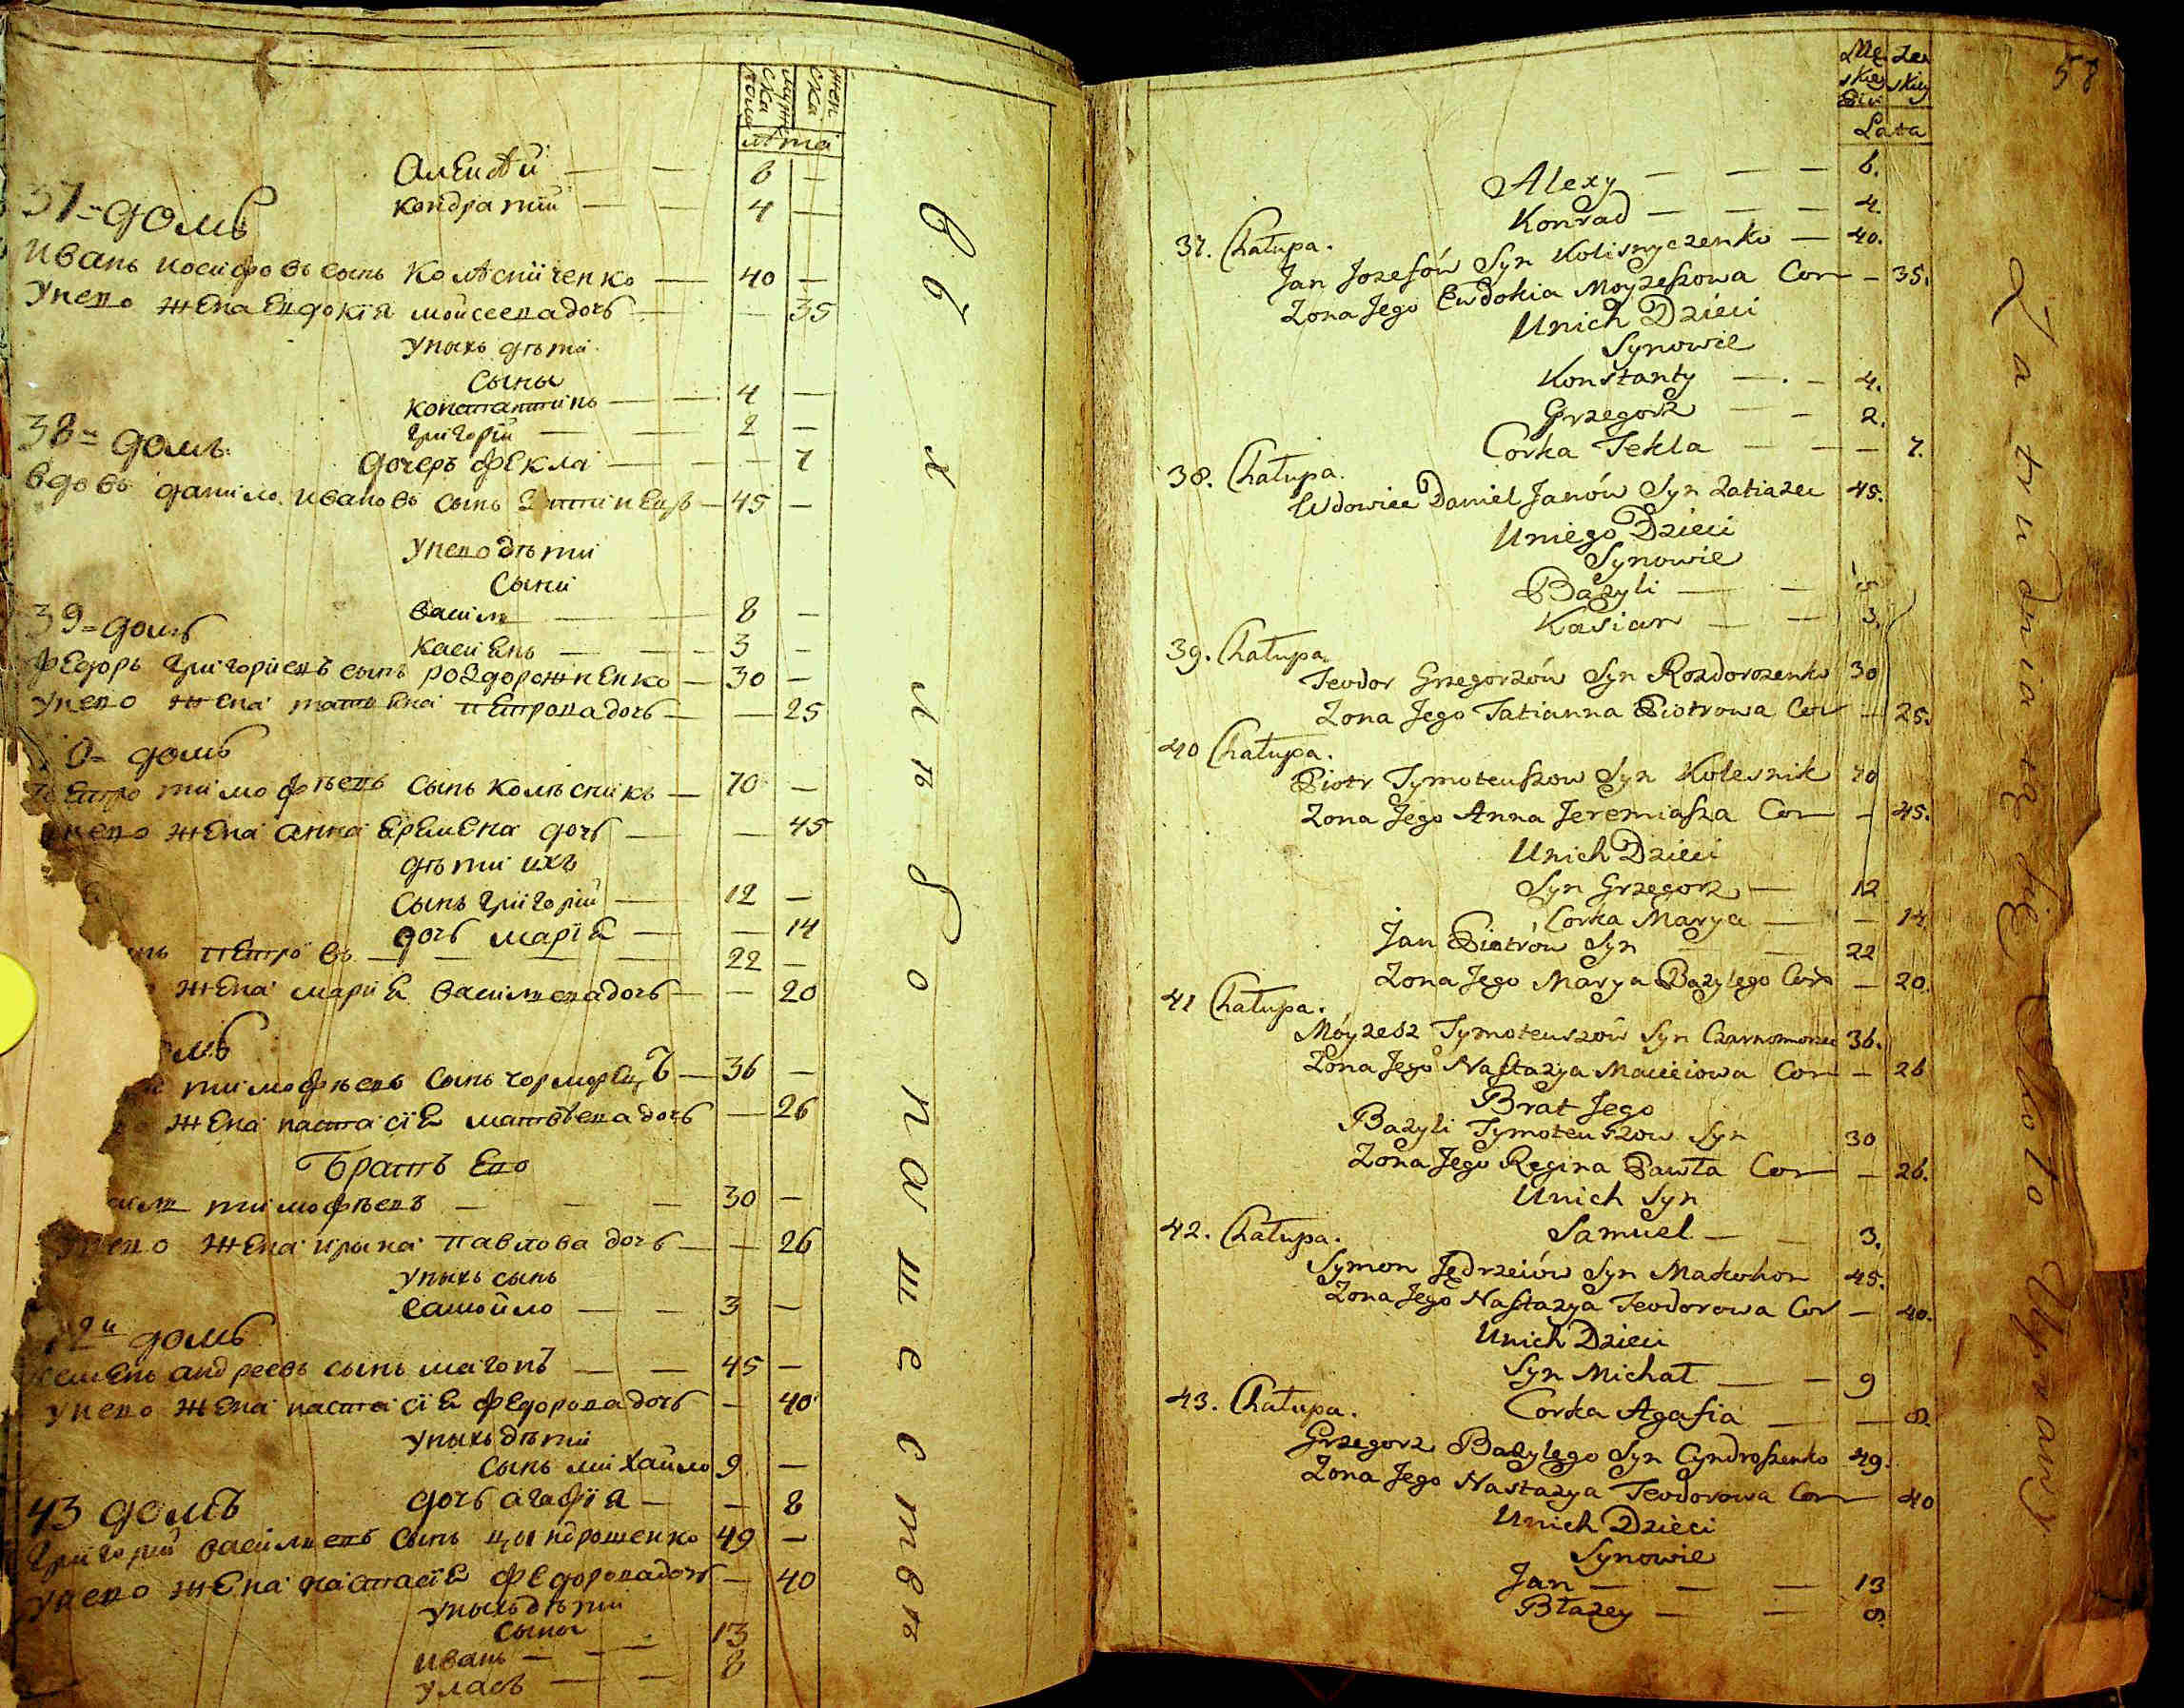 жен
ска
мужс
ска
лѣта
Алеѯѣй — — 6 —
Кондратий — — 4 —
37= домъ
Иванъ Иосифовъ сынъ Колѣсниченко — 40 —
У нево жена Евдокїя Мойсеева дочь — — 35
У нихъ дѣти
Сыны
Константинъ — — 4 —
Григорїй — — 2 —
Дочеръ Фекла — — — 7
38= домъ.
Вдовъ Данило Ивановъ сынъ — 45 —
У нево дѣти
Сыни
Василь — — 8 —
Касиянъ — — 3 —
39= домъ
Федоръ Григориевъ сынъ Роздорожненко — 30 —
У нево жена Татьяна Петрова дочь — — 25
0= домъ
Петро Тимофѣевъ сынъ Колѣсникъ — 70 —
У нево жена Анна Еремена дочь — — 45
Дѣти ихъ
Сынъ Григорїй — 12 —
Дочь Марїя — — 14
нъ Петровъ — — — — 22 —
жена Мария Василева дочь — — 20
мъ
й Тимофѣевъ сынъ Чорморецъ — 36 —
жена Настасїя Матвѣева дочь — 26
Братъ Ево
силь Тимофѣевъ — — — 30 —
У нево жена Ирина Павлова дочь — — 26
У нихъ сынъ
Самойло — — 3 —
2й домъ
Семенъ Андреевъ сынъ Магонъ — — 45 —
У нево жена Настасїя Федорова дочь — 40
У нихъ дѣти
Сынъ Михайло 9 —
Дочь Агафїя — — 8
43 домъ
Григорий Василиевъ сынъ Цындрошенко 49 —
У нево жена Настасїя Федорова дочь — 40
У нихъ дѣти
Сыны
Иванъ — — 13
Уласъ — — 8
въ хлѣбопашествѣ
58
Męskiey
Płci
Żeńskiey
Lata
Alexy — — — 6.
Konrad — — — 4.
37. Chałupa.
Jan Jozefów Syn Kolisnyczenko — 40.
Zona Jego Ewdokia Moyzeszowa Cor — — 35.
Unich Dzieci
Synowie
Konstanty — . — 4.
Grzegorz — — 2.
Corka Tekla — — — 7.
38. Chałupa.
Wdowiec Daniel Janów Syn Zatiazec 45.
Uniego Dzieci
Synowie
Bazyli — —
Kasian — — 3.
39. Chałupa
Teodor Grzegorzów Syn Rozdorozenko 30
Zona Jego Tatianna Piotrowa Cor — 25.
40 Chałupa.
Piotr Tymoteuszow Syn Kolesnik 70
Zona Jego Anna Jeremiasza Cor — 45.
Unich Dzieci
Syn Grzegorz — 12
Corka Marya — — 14
Jan Piotrów Syn — — 22
Zona Jego Marya Bazylego Cor — 20.
41 Chałupa.
Móyzesz Tymoteuszów Syn Czarnomorzec 36.
Zona Jego Nastazya Macieiowa Cor — 26
Brat Jego
Bazyli Tymoteuszow Syn 30
Zona Jego Regina Pawła Cor — 26.
Unich Syn
42. Chałupa. Samuel — — 3.
Symon Jędrzeiów Syn Makohon 45.
Zona Jego Nastazya Teodorowa Cor — 40.
Unich Dzieci
Syn Michał — — 9
43. Chałupa. Corka Agafia — — 8.
Grzegorz Bazylego Syn Cyndroszenko 49.
Zona Jego Nastazya Teodorowa Cor — 40
Unich Dzieci
Synowie
Jan — — — 13
Błazey — — 8.
Zatrudnia się Około Uprawy